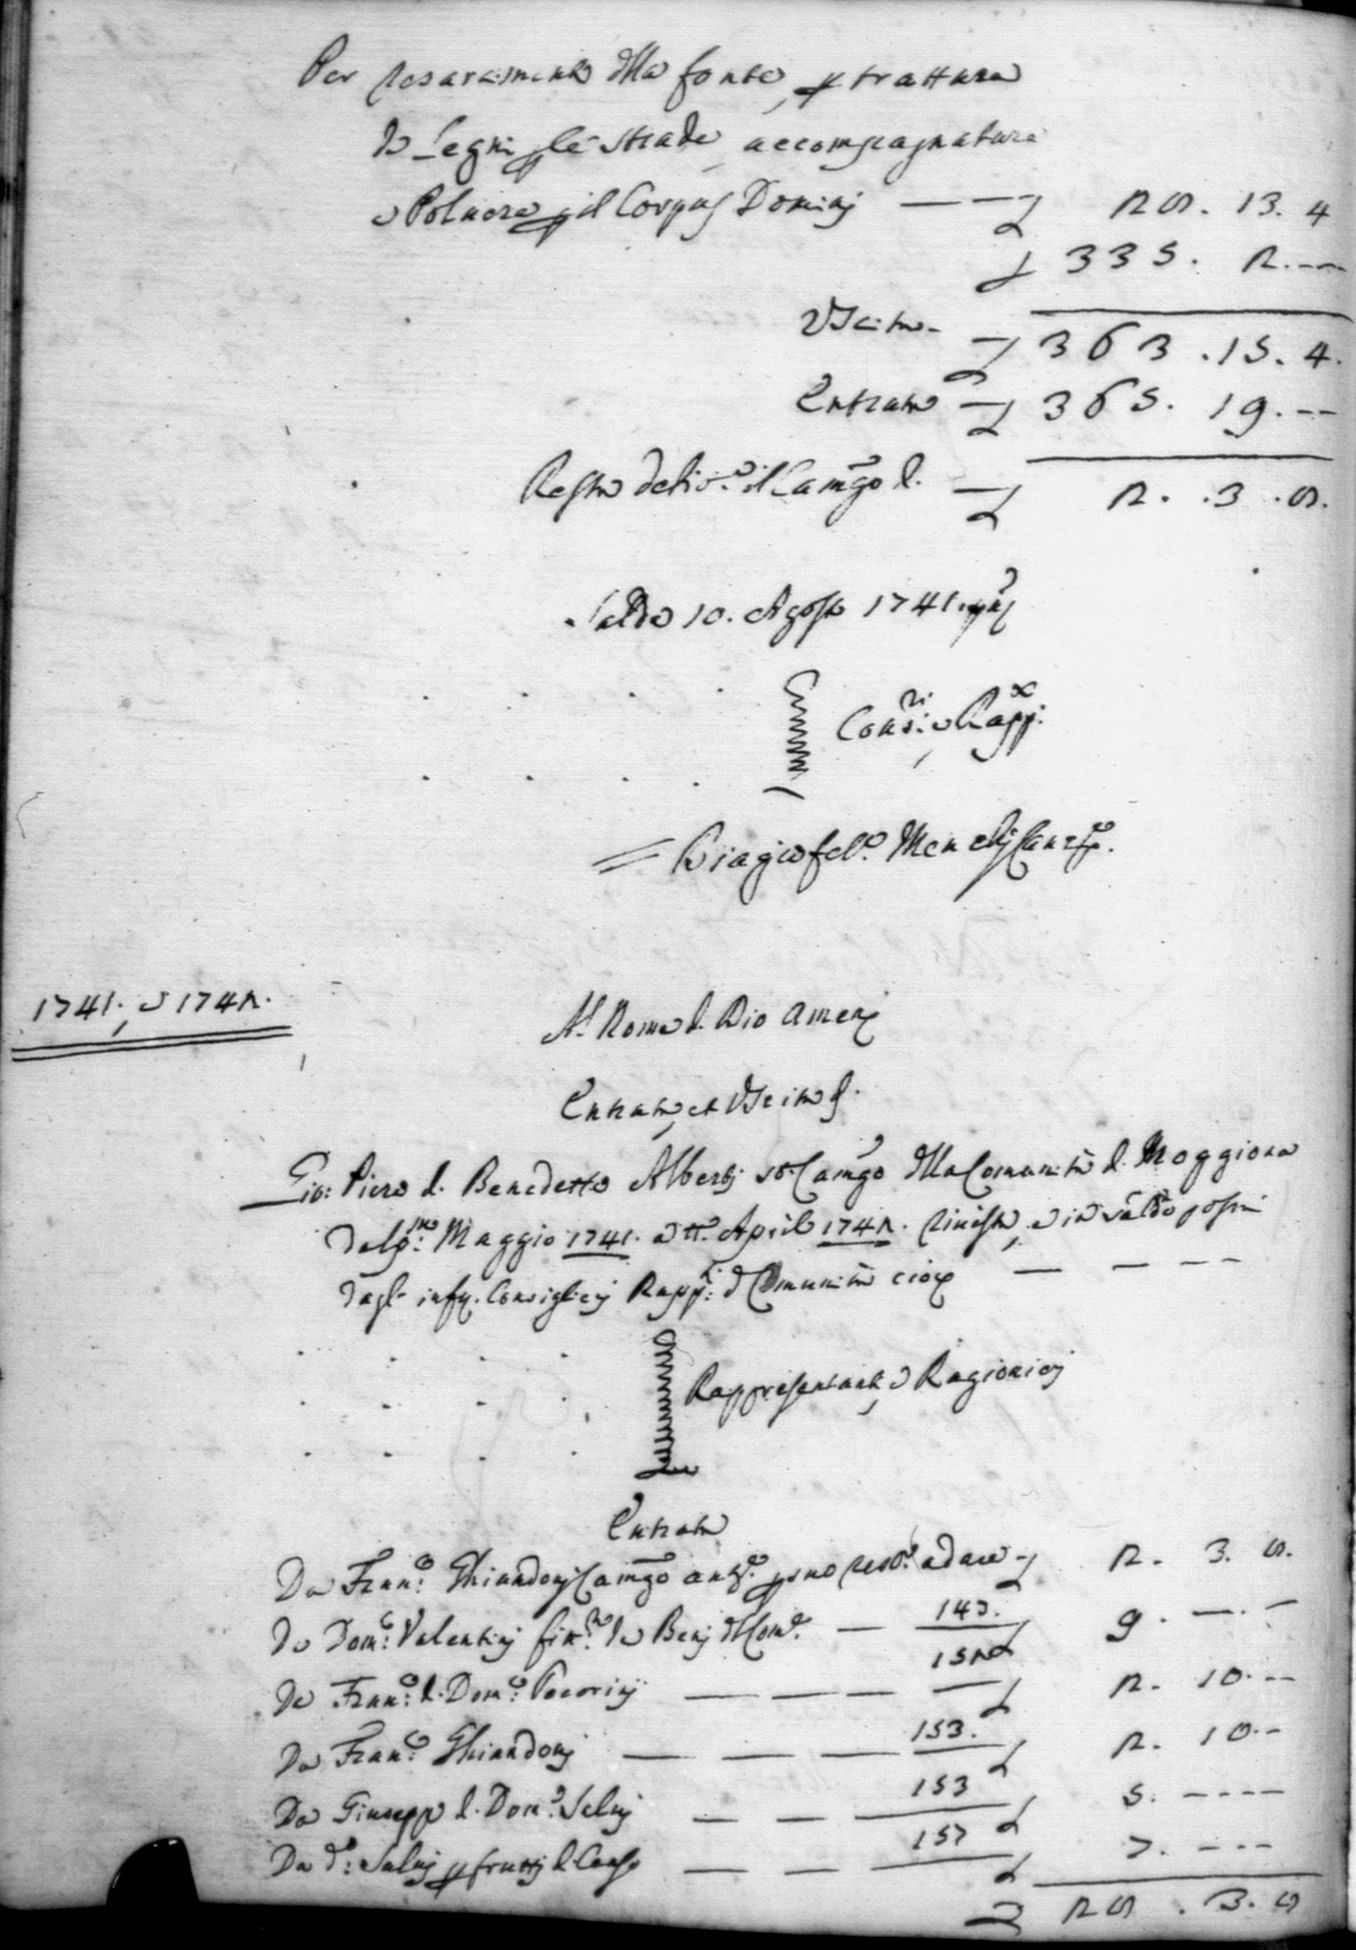 Per resarcimento dlla fonte, p trattura
di Legni p le strade, accompagnatura
e Poluere p il Corpus Dominj — — £ 28. 13. 4
£ 335. 2. --
Vscita - £ 363. 15. 4.
Entrata — £ 365. 19. --
Resta debit.e il Camgo d. — £ 2. 3. 8.
Saldo 10. Agosto 1741.
Cons.ri e Rapp.
= Biagio Menchj Canc.
1741. e 1742.
Al Nome d. Dio Amen
Entrata, et Vscita d.
Gio: Piero d. Benedetto Albertj Camgo dlla Comunità d. Moggiona
dal p.mo Maggio 1741. a tt.o Aprile 1742. riuista, e in saldo posta
dagl' infr. Consiglierj Rapp.ti d Comunità cioe — — — —
Rappresentanti, e Ragionierj
Entrata
Da Fran.co Ghiandonj Camgo ant.e p suo resto a dare - £ 2. 3. 8.
Da Dom.co Valentinj fitt.o de Benj d Com.tà — 143. £ 9. — . —
Da Fran.co d. Dom.co Pecorinj — — — 152 £ 2. 10. --
Da Fran.co Ghiandonj — — — 153. £ 2. 10. --
Da Giuseppe d. Dom.co Saluj — — 153 £ 5. ----
Da d.o Saluj p frutti d. Censo — — 157 £ 7. ---
£ 28. 3. 8